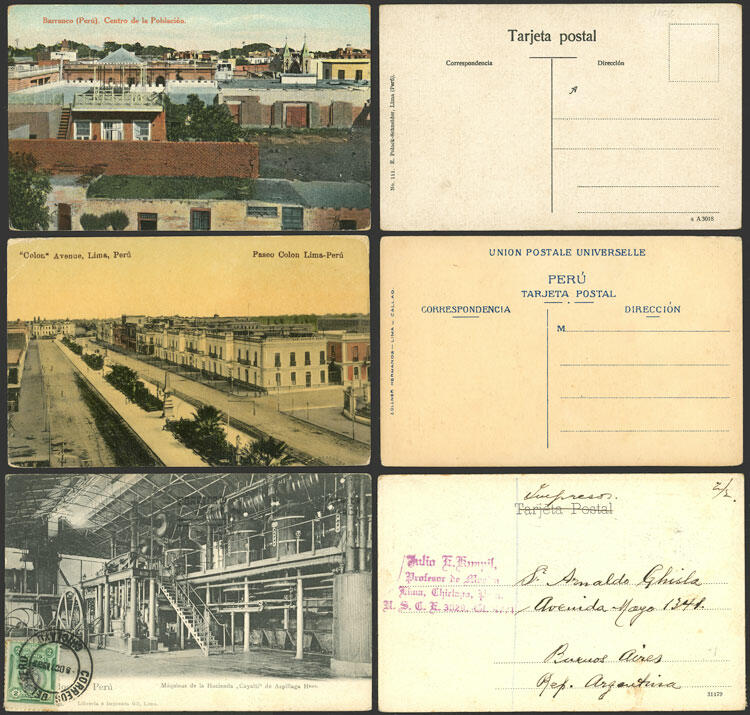 Barranco (Perú). Centro de la Población.
Tarjeta postal
Correspondencia
Dirección
A
No. 111. E. Polack-Schneider, Lima (Perú).
a A 3018
"Colon" Avenue, Lima, Perú
Paseo Colon Lima-Perú
UNION POSTALE UNIVERSELLE
PERÚ
TARJETA POSTAL
CORRESPONDENCIA
DIRECCIÓN
M
ZOLLNER HERMANOS — LIMA — CALLAO.
Perú
Máquinas de la Hacienda „Cayalti" de Aspillaga Hnos.
Librería e Imprenta Gil, Lima.
CHICLAYO
CORREOS DEL PERU
2
Impresos.
2/2.
Tarjeta Postal
Julio E.
Profesor de
Lima, Chiclayo,
U. S. C. E.
Sr. Arnaldo Ghisla
Avenida Mayo
Buenos Aires
Rep. Argentina
31179